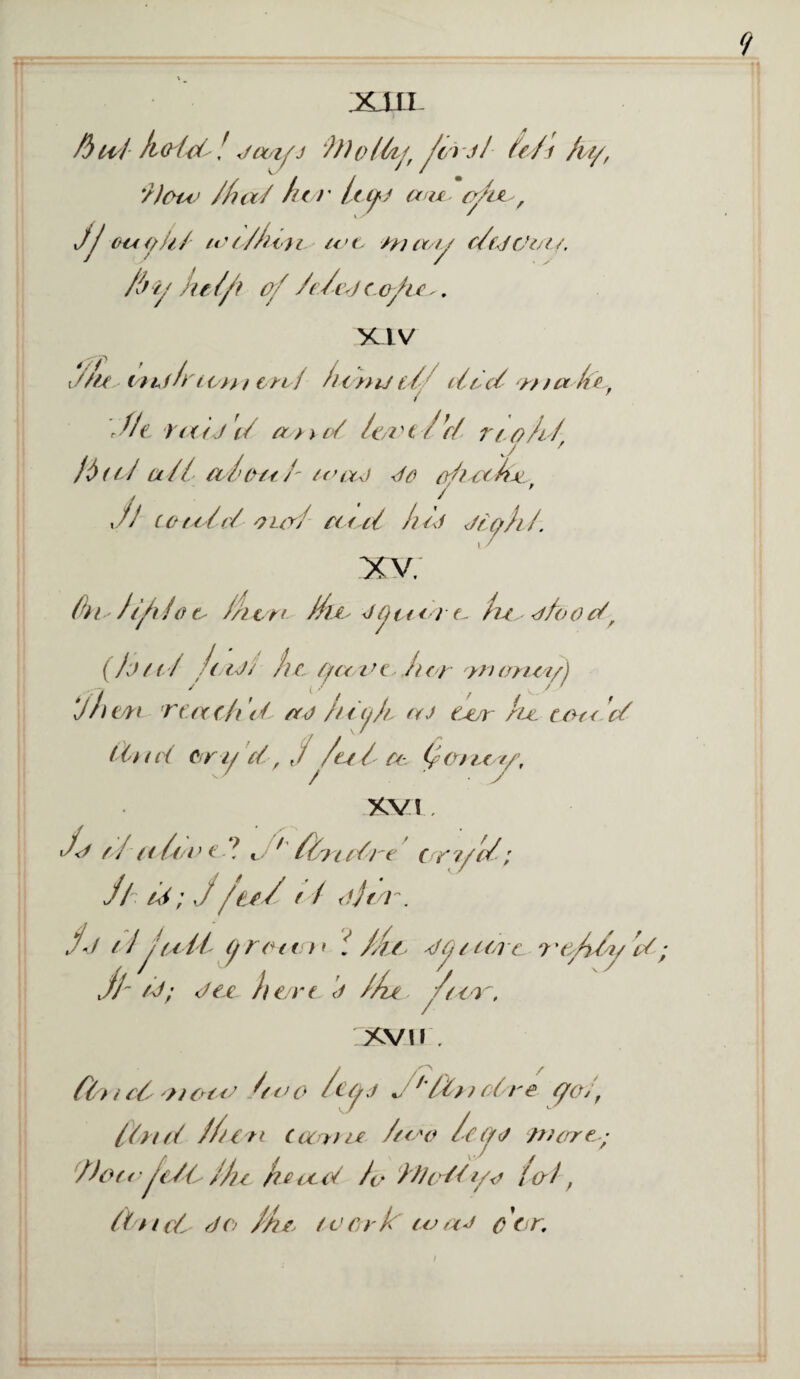 9
XIII
But hold! says Molly, first let's try,
Now that her legs are ope,
If ought within we may descry.
By help of telescope.
XIV
The instrument himself did make,
He rais'd and level'd right,
But all about was so opake,
It could not aid his sight.
XV.
On tiptoe then the squire he stood,
(But first he gave her money)
Then reach'd as high as e'er he cou'd
And cry'd, I feel a Coney,
XVI.
Is it alive? St. Andre' cry'd;
It is; I feel it stir.
Is it full grown? The squire reply'd;
It is; see here's the fur.
XVII.
And now two legs St. Andre got,
And then came two legs more;
Now fell the head to Molly's lot,
And so the work was o'er.